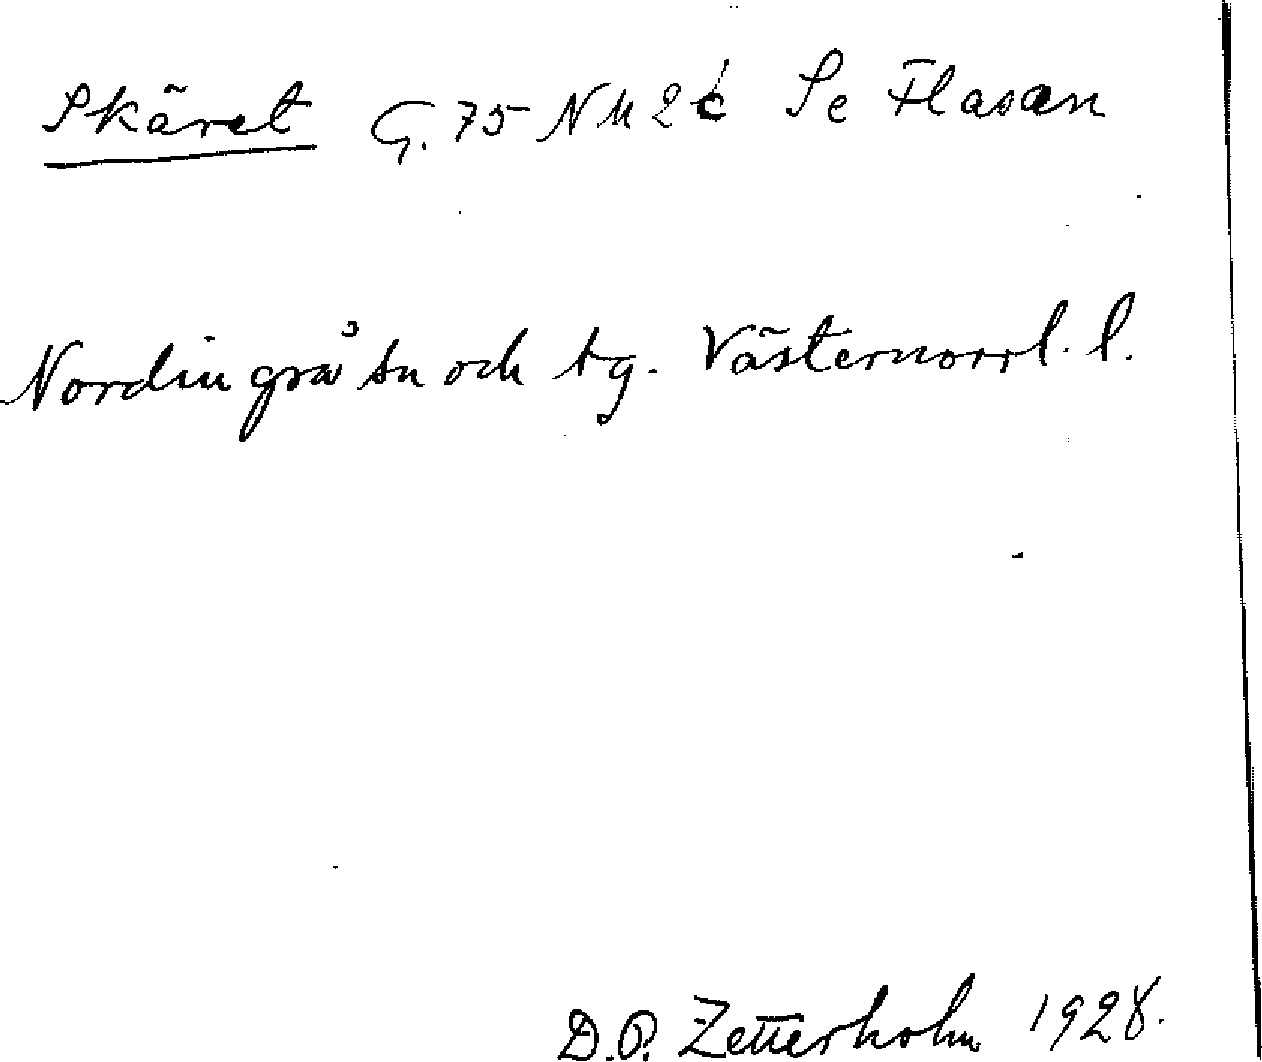 Skäret G. 75 NM 2 c Se Flasan
Nordingrå sn och tg. Västernorrl. l.
D.O. Zetterholm 1928.